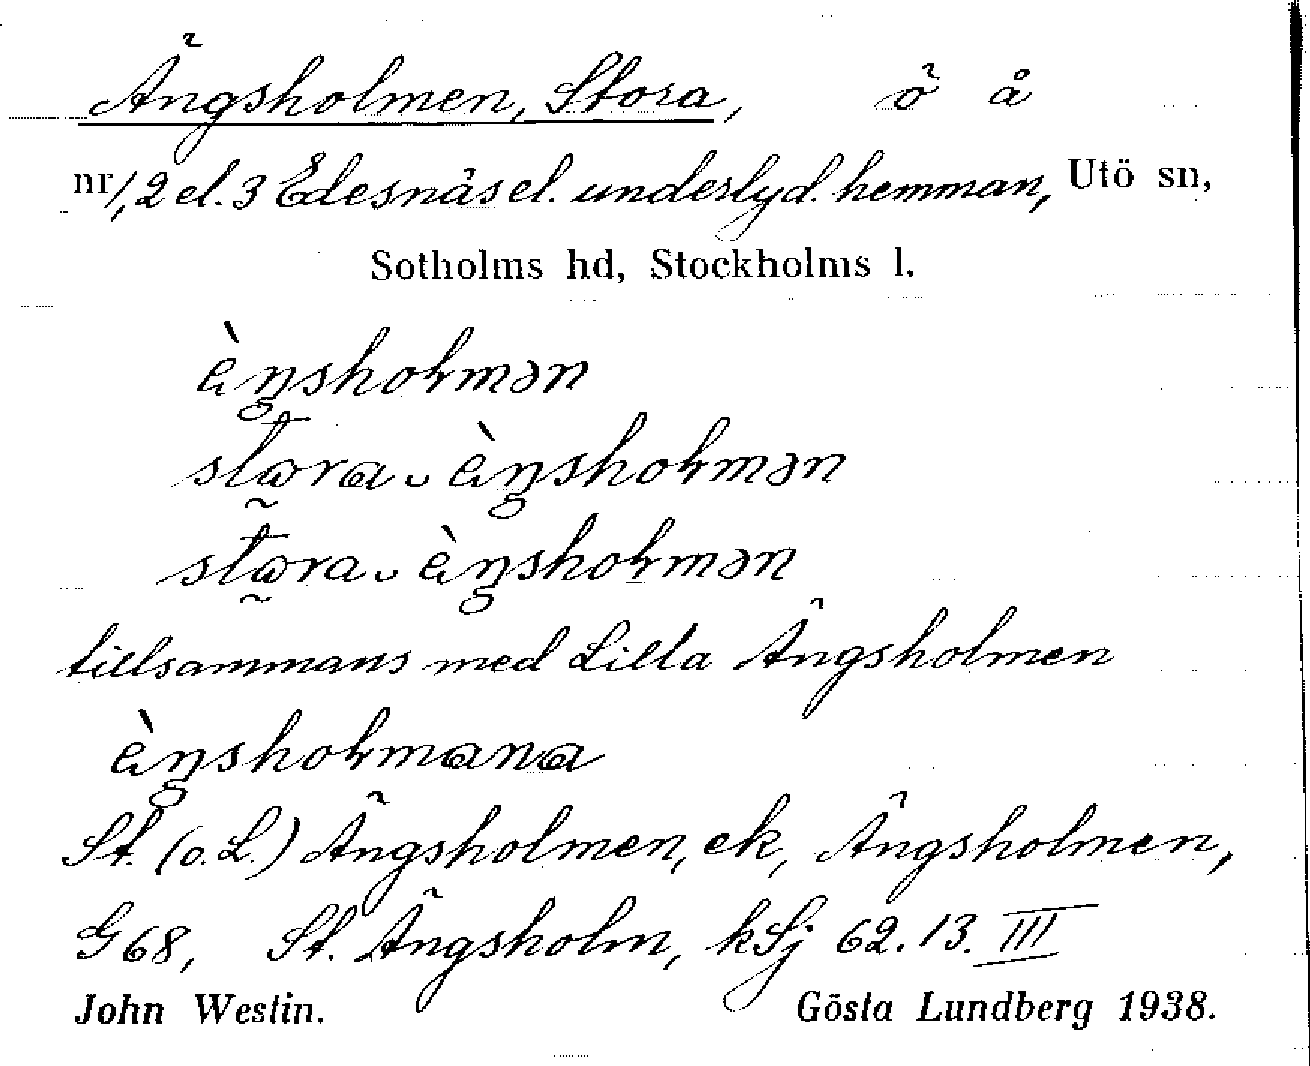 Ängsholmen, Stora, ö å
nr 1, 2 el. 3 Edesnäs el. underlyd. hemman, Utö sn,
Sotholms hd, Stockholms l.
ὲŋshoɫmən
stωra ᴗ ὲŋshoɫmən
stωra ᴗ ὲŋshoɫmən
tillsammans med Lilla Ängsholmen
ὲŋshoɫmana
St. (o. L.) Ängsholmen, ek, Ängsholmen,
G 68, St. Ängsholm, kSj 62. 13. III
John Westin. Gösta Lundberg 1938.